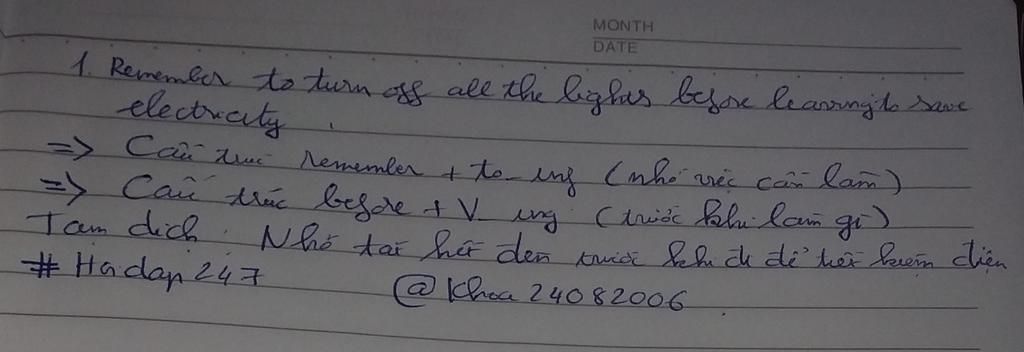 MONTH
DATE
1. Remember to turn off all the lights before leaving to save
electricity.
=> Cấu trúc remember + to_ing (nhớ việc cần làm)
=> Cấu trúc before + V_ing (trước khi làm gì)
Tạm dịch: Nhớ tắt hết đèn trước khi đi để tiết kiệm điện
# Hoidap247 @Khoa24082006